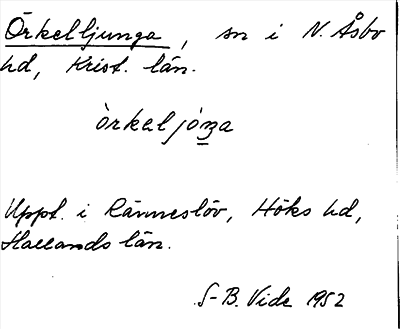 Örkelljunga, sn i N. Åsbo
hd, Krist. län.
òrkeljóŋa
Uppt. i Ränneslöv, Höks hd,
Hallands län.
S-B. Vide 1952